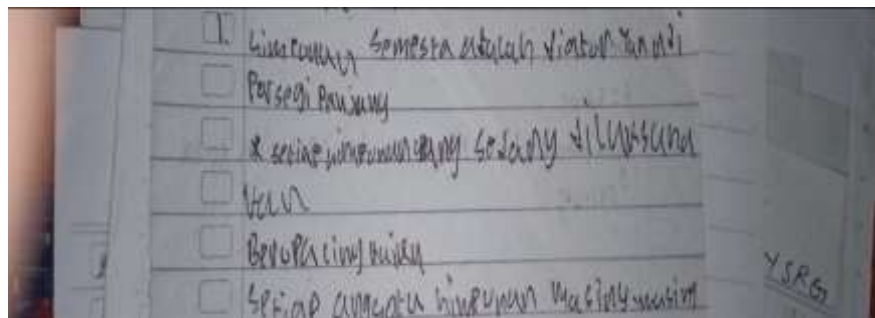 1. himpunan Semesta adalah diatur Yan di
Persegi Panjang
* setiap himpunan yang sedang di
Berupa lingkaran
Setiap anggota himpunan masing-masin
YSRG